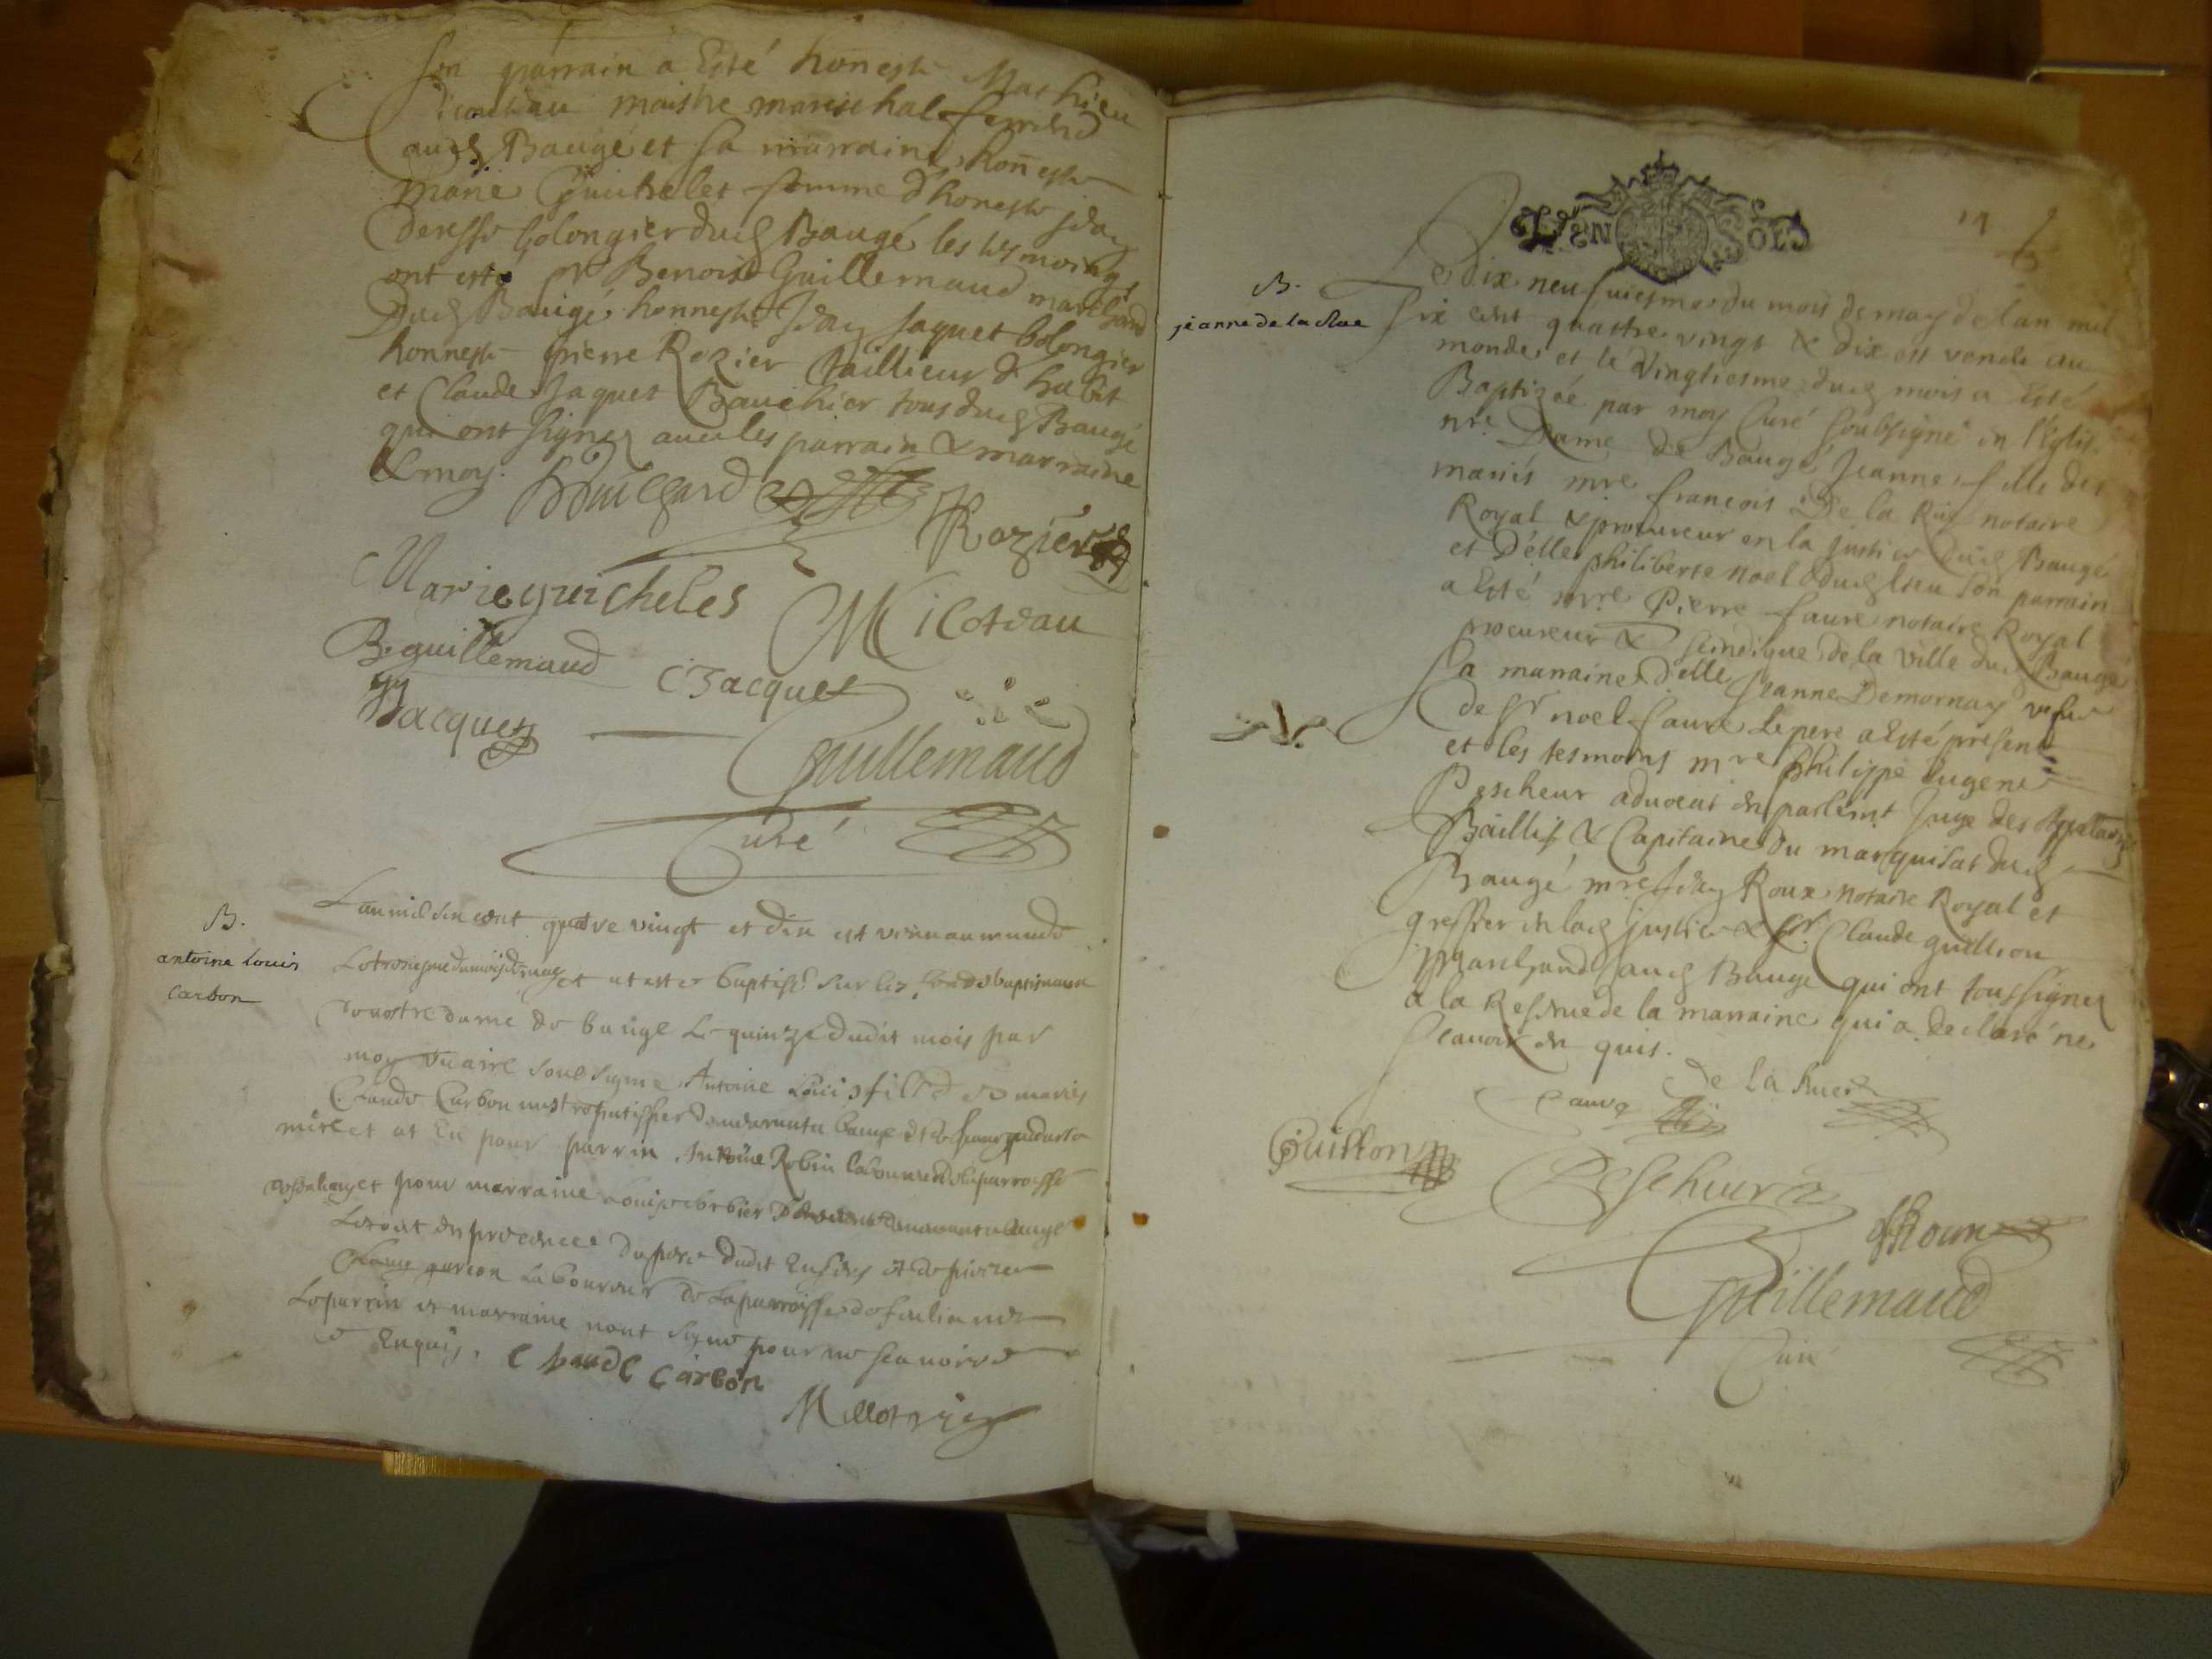 son parrain a Esté honneste Mathieu
maistre mareschal
aud Baugé et sa marraine honneste
Marie Guichelet femme d'honeste Jean
bolongier dud Baugé les tesmoings
ont esté Sr Benoist Guillemaud marchand
Dud Baugé honneste Jean Jaquet bolongier
honneste pierre Rozier tailleur d'habit
et Claude Jaquet tous dud Baugé
qui ont signez avec les parrain & marraine
& moy.
Rozier
Marie guicheles
Miloteau
B. guillemaud
C Jacquet
Jacquet
Guillemaud
Curé
B.
antoine louis
Carbon
L'an mil six cent quatre vingt et dix est venu au monde
Le troisiesme du mois de may et at esté baptisé sur les fonds baptismaux
de nostre dame de baugé Le quinze dudit mois par
moy vicaire soubsigné Antoine Louis fils des mariés
Claude Carbon
et at Eu pour parrin Antoine Robin laboureur de la parroisse
et pour marraine
Le tout en presence du pere dudit Enfans et de pierre
laboureur de la parroisse de
Le parrin et marraine nont signé pour ne scavoir de
Enquis.
Claude Carbon
LYON SOLS
B.
jeanne de la Rue
Le dix neufviesme du mois de may de l'an mil
six cent quattre vingt & dix est venüe au
monde et le Vingtiesme dud mois a Esté
Baptizée par moy Curé soubsigné en l'Eglise
nre Dame de Baugé Jeanne fille des
mariés mre françois De la Rüe notaire
Royal & procureur en la justice dud Baugé
et D'elle philiberte noel dud lieu son parrain
a Esté mre Pierre faure notaire Royal
procureur & scindique de la Ville dud Baugé
sa marraine d'elle Jeanne Demornay vefve
de Sr noel faure Le pere a Esté present
et les tesmoins mre philippe Eugene
Pescheur advocat en parlemt Juge des Appellaons
Baillif & Capitaine du marquisat dud
Baugé mre Jean Roux notaire Royal et
greffier en lad justice & Sr Claude guillion
Marchand aud Baugé qui ont tous signez
a la Reserve de la marraine qui a declaré ne
sçavoir en quis.
De la Rue
faure
Guillon
Pescheur
JRoux
Guillemaud
Curé